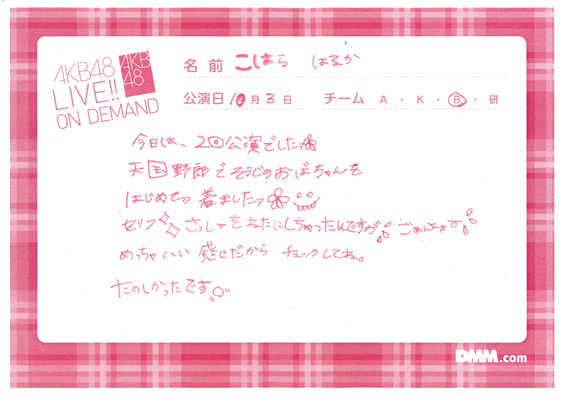 AKB48
LIVE!!
ON DEMAND
AKB
48
名前 こはら はるか
公演日 10月3日 チーム A・K・B・研
今日は、2回公演でした
天国野郎でそうじのおばちゃんを
はじめてっ 着ましたァ
セリフ さいしょを わたにしちゃったんですが ごめんなさい
めっちゃいい 感じだから チェックしてね。
たのしかったです
DMM.com